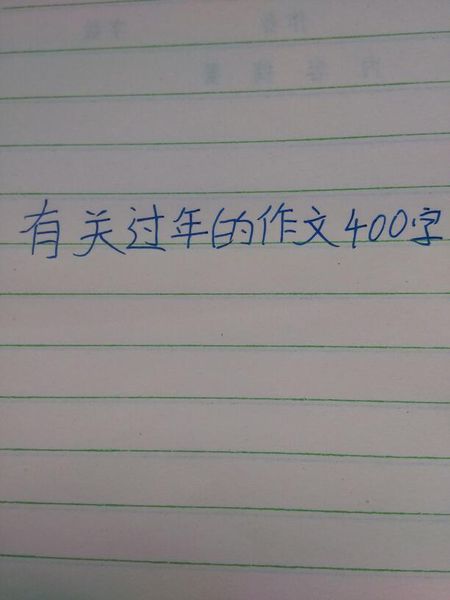 有关过年的作文400字